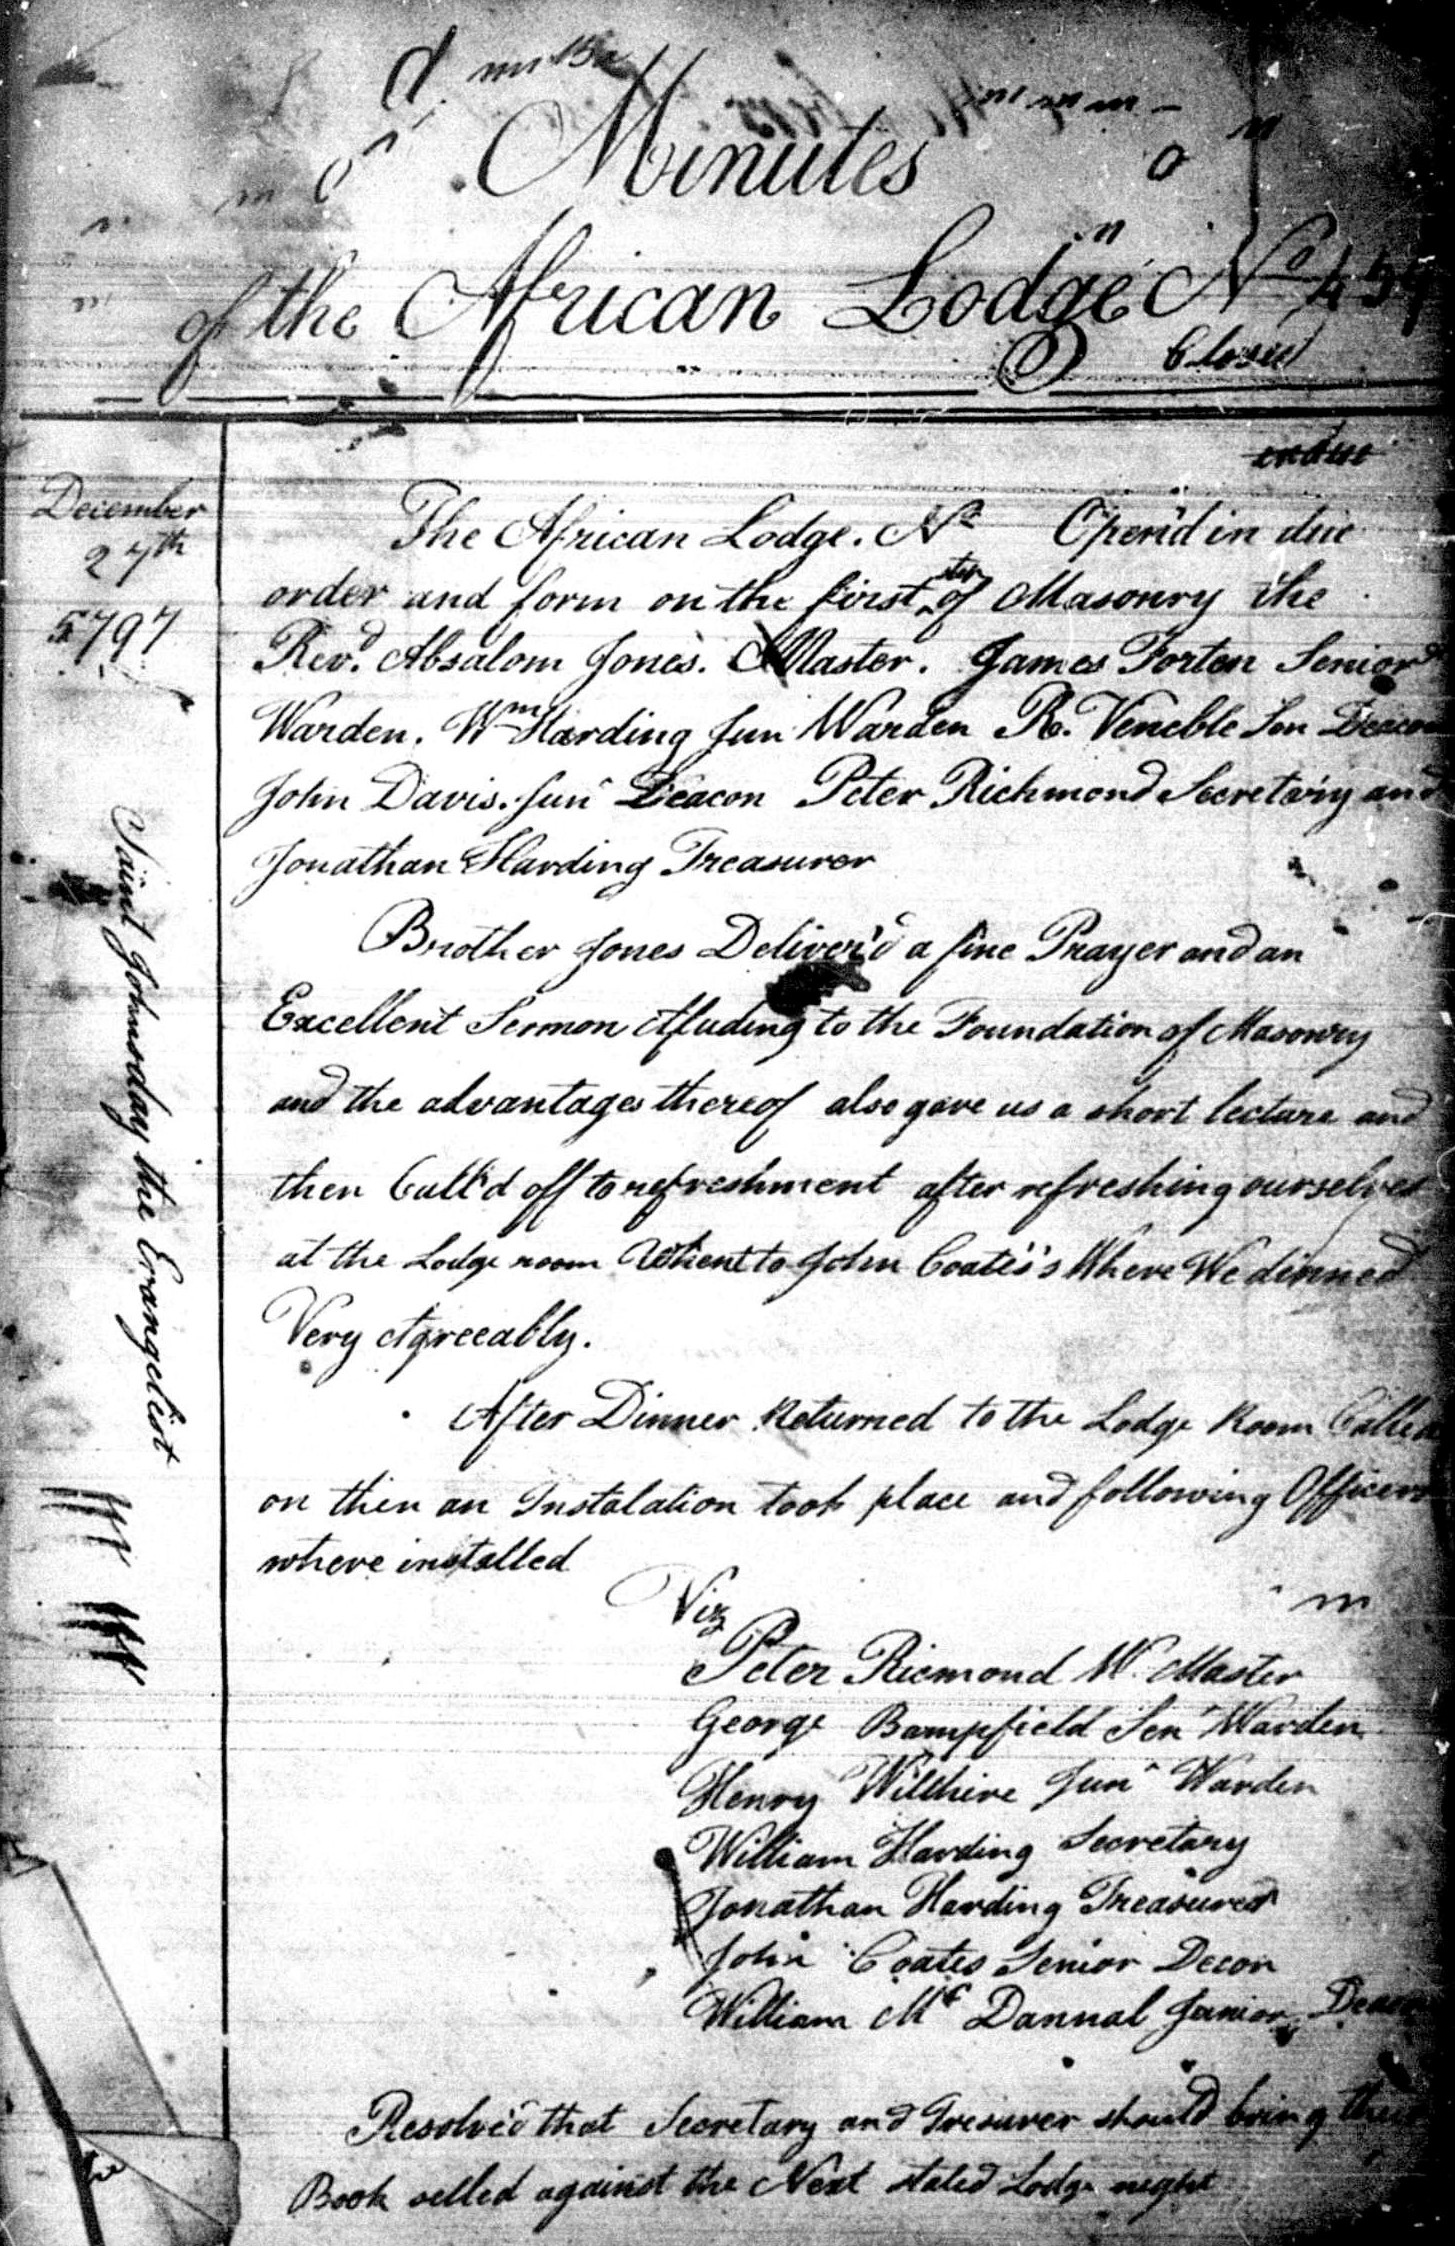 Minutes
of the African Lodge No 459
Closed
December
27th
5797
Saint Johnsday the Evangelist
The African Lodge. No Open'd in due
order and form on the first step of Masonry the
Revd. Absalom Jones. Master. James Forten Senior
Warden. Wm Harding Jun Warden R. Veneble Sen Deacon
John Davis. Junr Deacon Peter Richmond Secretary and
Jonathan Harding Treasurer
Brother Jones Deliver'd a fine Prayer and an
Excellent Sermon Aluding to the Foundation of Masonry
and the advantages thereof also gave us a short lecture and
then Call'd off to refreshment after refreshing ourselves
at the Lodge room Whent to John Coates's Where We dinned
Very Agreeably.
After Dinner Returned to the Lodge Room Called
on then an Instalation took place and following Officers
where installed
Viz
Peter Ricmond W. Master
George Bampfield Senr Warden
Henry Wilthire Junr Warden
William Harding Secretary
Jonathan Harding Treasurer
John Coates Senior Decon
William Mc Dannal Junior Deacon
Resolved that Secretary and Tresurer should bring their
Book selled against the Next stated Lodge night